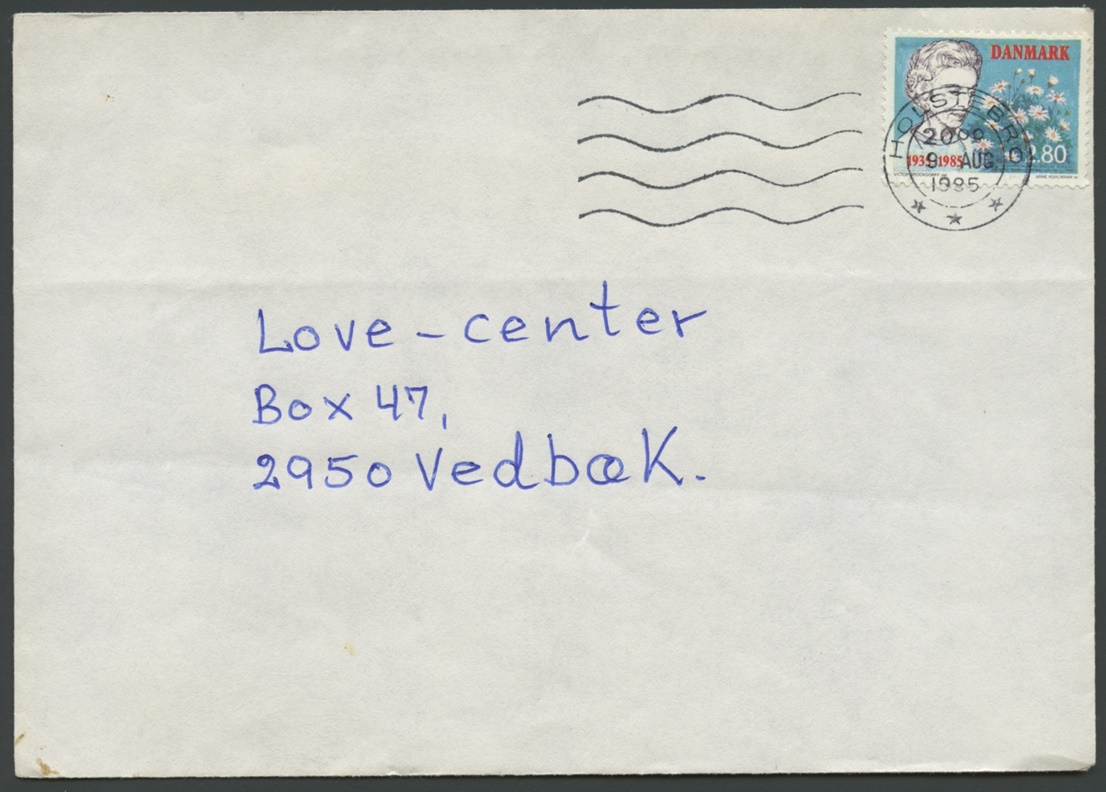 DANMARK
1935 1985
2.80
HOLSTEBRO
2000
9. AUG
1985
Love-center
Box 47,
2950 Vedbæk.